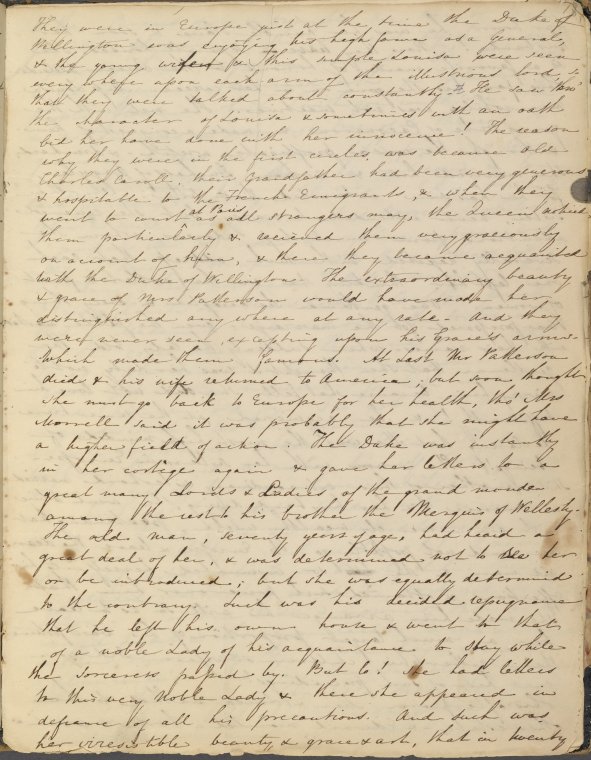 They were in Europe just at the time the Duke of
Wellington was enjoying his high fame as a general,
& the young & this simple Louisa were seen
every where upon each arm of the illustrious lord, so
that they were talked about constantly. He saw thro'
the character of Louisa & sometimes with an oath
bid her have done with her innocence! The reason
why they were in the first circles, was because old
Charles Carroll, their grandfather had been very generous
& hospitable to the French Emigrants, & when they
at Paris
went to court as all strangers may, the Queen noticed
them particularly & recieved them very graciously
on account of him, & there they became acquainted
with the Duke of Wellington. The extraordinary beauty
& grace of Mrs Patterson would have made her
distinguished any where at any rate. And they
were never seen, excepting upon his Grace's arms—
which made them famous. At last Mr Patterson
died & his wife returned to America, but soon thought
she must go back to Europe for her health, tho' Mrs
Morrell said it was probably that she might have
a higher field of action. The Duke was instantly
in her cortège again & gave her letters to a
great many Lords & Ladies of the grand monde
among the rest to his brother the Marquis of Wellesly.
The old man, seventy years of age, had heard a
great deal of her, & was determined not to see her
or be introduced; but she was equally determined
to the contrary. Such was his decided repugnance
that he left his own house & went to that
of a noble Lady of his acquaintance to stay while
the sorceress passed by. But lo! she had letters
to this very noble Lady & there she appeared in
defiance of all his precautions. And such was
her irresistible beauty, & grace & art, that in twenty